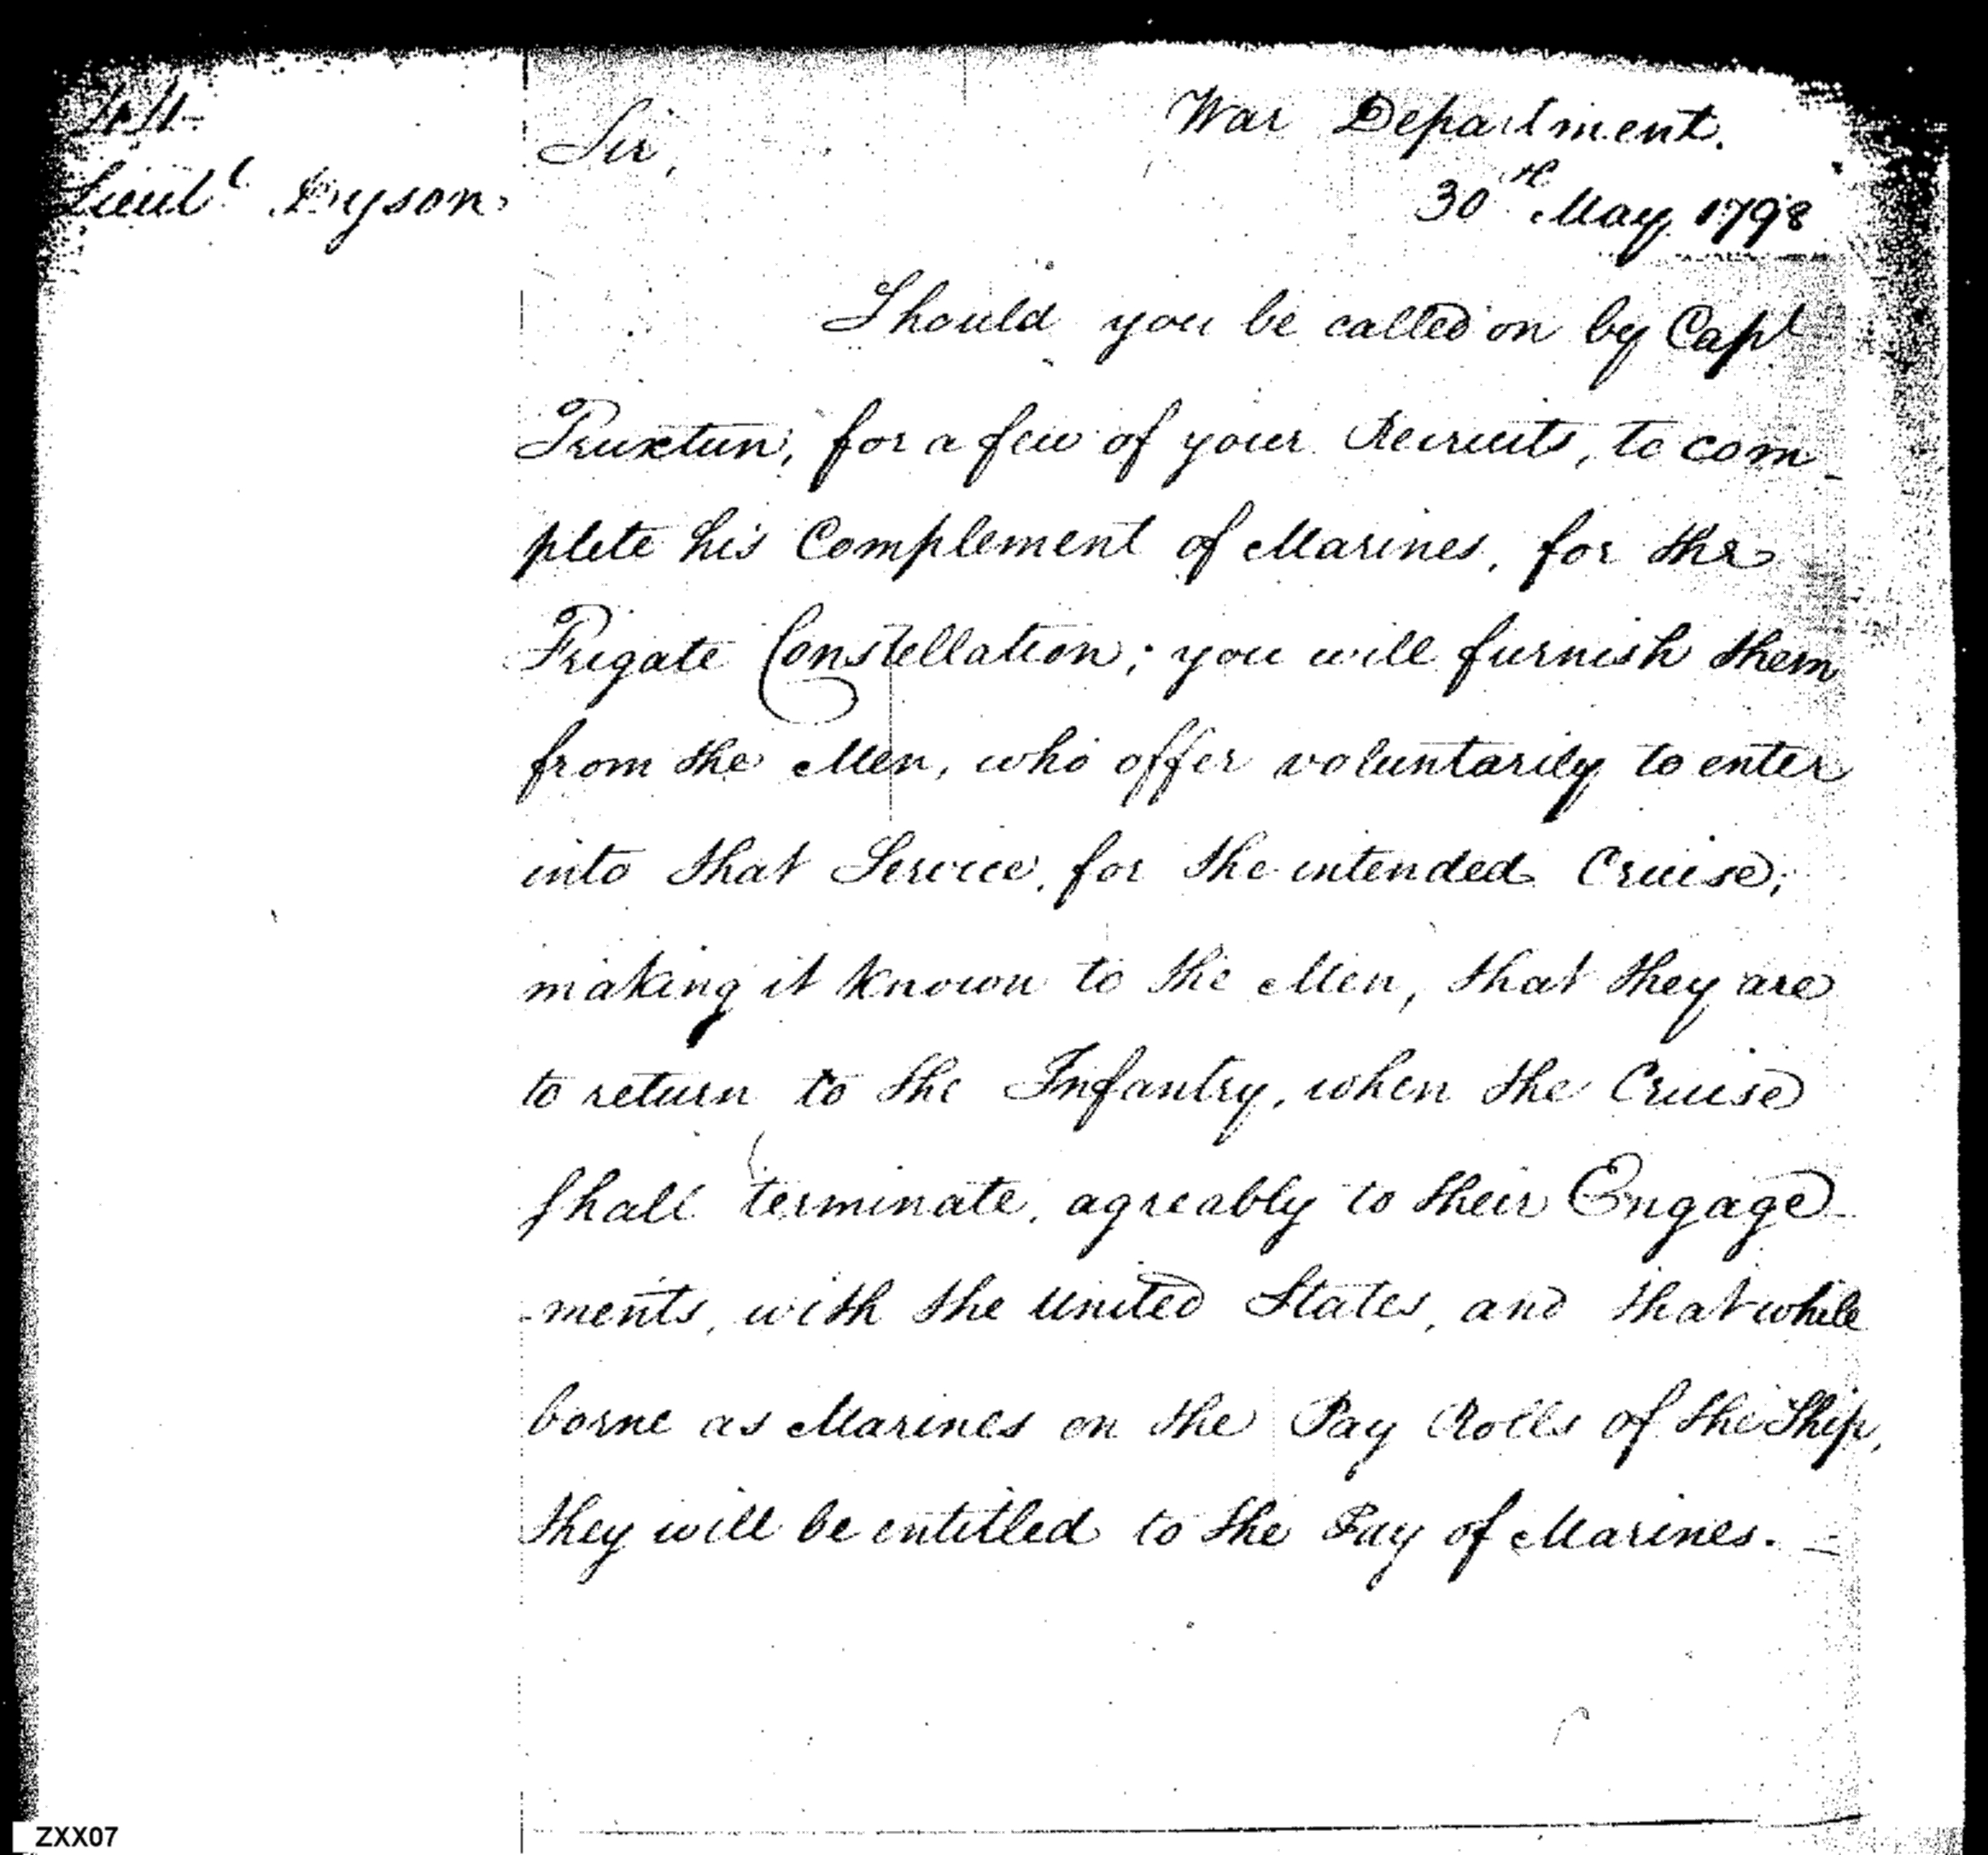 44
Lieut. Dyson.
Sir,
War Department.
30th May 1798
Should you be called on by Capt
Truxtun, for a few of your Recruits, to com-
plete his Complement of Marines, for the
Frigate Constellation; you will furnish them
from the Men, who offer voluntarily to enter
into that Service, for the intended Cruise;
making it known to the Men, that they are
to return to the Infantry, when the Cruise
shall terminate, agreably to their Engage-
-ments, with the United States, and that while
borne as Marines on the Pay Rolls of the Ship,
they will be entitled to the Pay of Marines. —
ZXX07